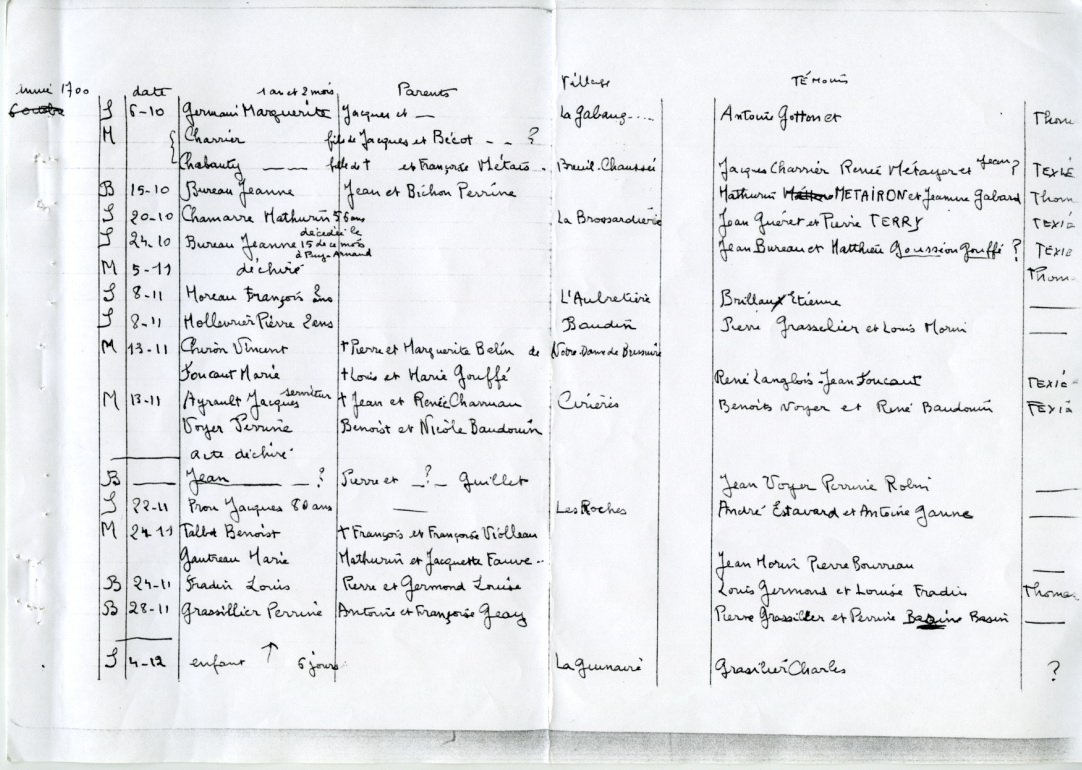 année 1700 date 1 an et 2 mois Parents Village TÉMOINS
6 octobre S 6-10 Germain Marguerite Jacques et — La Gabaug.... Antoine Gotton et Thom
M Charrier fils de Jacques et Bécot - - ?
Chabauty —— fille de † et Françoise Métais.. Breuil-Chaussée Jacques Charrier Renée Métayer et Jean ? TEXIE
B 15-10 Bureau Jeanne Jean et Bichon Perrine Mathurin METAIRON et Jeanne Gabard Thom
S 20-10 Chamarre Mathurin 56 ans La Brossarderie Jean Guéret et Pierre TERRY TEXIE
S 24-10 Bureau Jeanne décédée le 15 de ce mois à Puy-Arnaud Jean Bureau et Matthieu Goussion Gouffé ? TEXIE
M 5-11 déchiré Thom
S 8-11 Moreau François 2 ans L'Aubretière Brillaux Etienne —
S 8-11 Hollevrier Pierre 2 ens Baudin Pierre Grasselier et Louis Morin —
M 13-11 Chiron Vincent † Pierre et Marguerite Belin de Notre Dame de Bressuire
Foucaut Marie † Louis et Marie Gouffé René Langlois - Jean Foucaut TEXIE
M 13-11 Ayrault Jacques serviteur † Jean et Renée Charruau Cirières Benoits Voyer et René Baudouin TEXIE
Voyer Perrine Benoist et Nicole Baudouin
—— acte déchiré
B —— Jean —— ? Pierre et _?_ Guillet Jean Voyer Perrine Robin —
S 22-11 Prou Jacques 80 ans — Les Roches André Estavard et Antoine Ganne —
M 24-11 Talbot Benoist † François et Françoise Violleau
Gautreau Marie Mathurin et Jacquette Fauve.. Jean Morin Pierre Bouvreau —
B 24-11 Fradin Louis Pierre et Germond Louise Louis Germond et Louise Fradin Thomas
B 28-11 Grassillier Perrine Antoine et Françoise Geay Pierre Grassiller et Perrine Basin —
S 4-12 enfant ↑ 6 jours La Guinairé Grasilier Charles ?